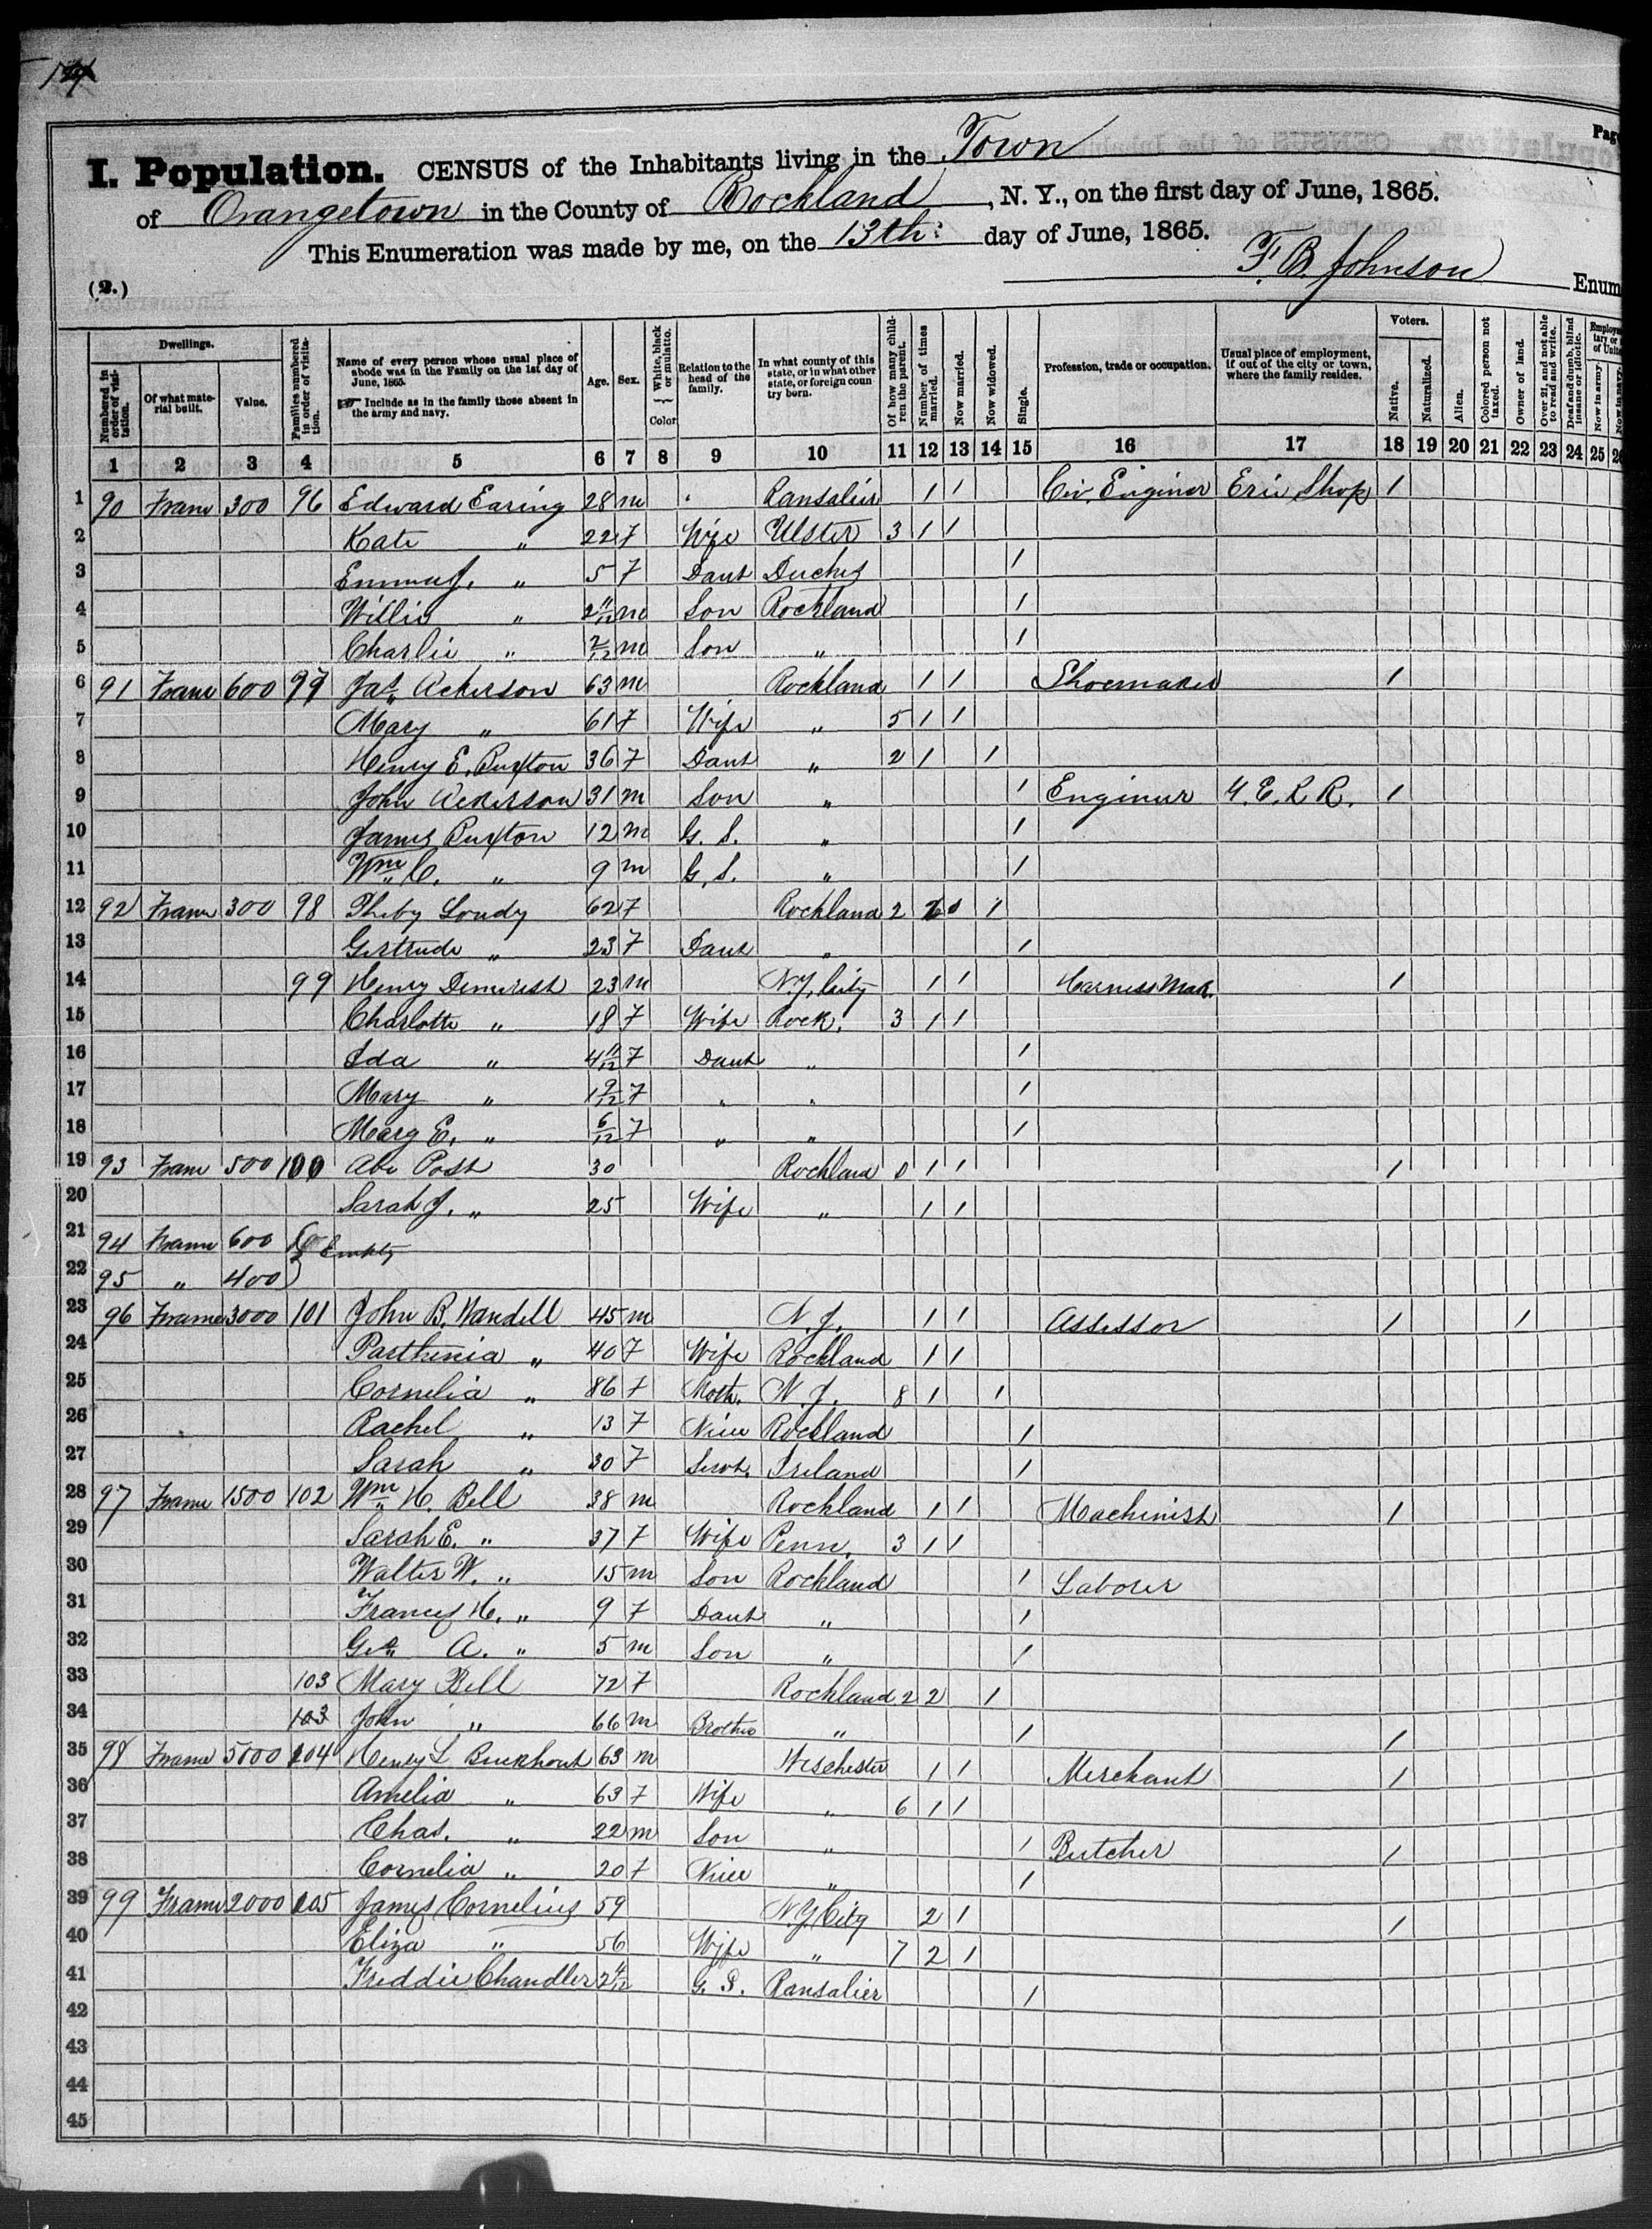 I. Population. CENSUS of the Inhabitants living in the Town
Page
of Orangetown in the County of Rockland, N. Y., on the first day of June, 1865.
This Enumeration was made by me, on the 13th: day of June, 1865.
F. B. Johnson Enum
(2.)
Dwellings.
Numbered in order of visitation.
Of what material built.
Value.
Families numbered in order of visitation.
Name of every person whose usual place of abode was in the Family on the 1st day of June, 1865.
Include as in the family those absent in the army and navy.
Age.
Sex.
White, black or mulatto.
Color
Relation to the head of the family.
In what county of this state, or in what other state, or foreign country born.
Of how many children the parent.
Number of times married.
Now married.
Now widowed.
Single.
Profession, trade or occupation.
Usual place of employment, if out of the city or town, where the family resides.
Voters.
Native.
Naturalized.
Alien.
Colored person not taxed.
Owner of land.
Over 21, and not able to read and write.
Deaf and dumb, blind insane or idiotic.
Now in army.
Now in navy.
1 2 3 4 5 6 7 8 9 10 11 12 13 14 15 16 17 18 19 20 21 22 23 24 25
1 90 Frame 300 96 Edward Earing 28 m Ransalier 1 1 Civ. Enginer Erie Shop 1
2 Kate " 22 F Wife Ulster 3 1 1
3 Emma J. " 5 F Daut Duches 1
4 Willie " 2 11/12 m Son Rockland 1
5 Charlie " 2/12 m Son " 1
6 91 Frame 600 97 Jas. Ackerson 63 m Rockland 1 1 Shoemaker 1
7 Mary " 61 F Wife " 5 1 1
8 Henry E. Buxton 36 F Daut " 2 1 1
9 John Ackerson 31 m Son " 1 Enginer E. R. R. 1
10 James Buxton 12 m G. S. " 1
11 Wm C. " 9 m G. S. " 1
12 92 Frame 300 98 Pheby Loudy 62 F Rockland 2 1
13 Gertrude " 23 F Daut " 1
14 99 Henry Demerest 23 m N.Y. City 1 1 Harness Mak. 1
15 Charlotte " 18 F Wife Rock. 3 1 1
16 Ida " 4 11/12 F Daut " 1
17 Mary " 1 9/12 F " " 1
18 Marg E. " 6/12 F " " 1
19 93 Frame 500 100 Abe Post 30 Rockland 0 1 1 1
20 Sarah J. " 25 Wife " 1 1
21 94 Frame 600 Empty
22 95 " 400
23 96 Frame 3000 101 John B. Wandell 45 m N. J. 1 1 Assessor 1 1
24 Parthenia " 40 F Wife Rockland 1 1
25 Cornelia " 86 F Moth. N. J. 8 1 1
26 Rachel " 13 F Niece Rockland 1
27 Sarah " 30 F Servt. Ireland 1
28 97 Frame 1500 102 Wm H. Bell 38 m Rockland 1 1 Machinist 1
29 Sarah E. " 37 F Wife Penn. 3 1 1
30 Walter W. " 15 m Son Rockland 1 Laborer
31 Frances H. " 9 F Daut " 1
32 Geo A. " 5 m Son " 1
33 103 Mary Bell 72 F Rockland 2 2 1
34 103 John " 66 m Brother " 1 1
35 98 Frame 5000 104 Henry L Buckhout 63 m Weschester 1 1 Merchant 1
36 Amelia " 63 F Wife " 6 1 1
37 Chas. " 22 m Son " 1 Butcher 1
38 Cornelia " 20 F Niece " 1
39 99 Frame 2000 105 James Cornelius 59 N.Y City 2 1 1
40 Eliza " 56 Wife " 7 2 1
41 Freddie Chandler 2 4/12 G. S. Ransalier 1
42
43
44
45